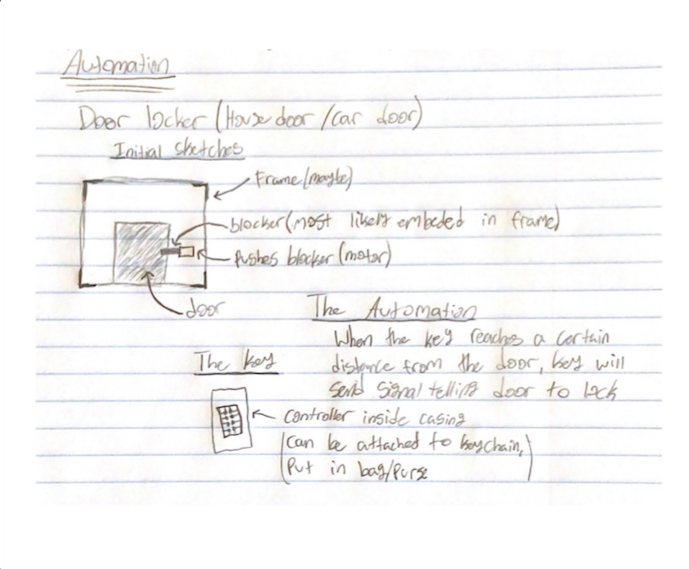 Automation
Door locker (House door / car door)
Initial sketches
Frame (maybe)
blocker (most likely embeded in frame)
Pushes blocker (motor)
door
The Automation
When the key reaches a certain
distance from the door, key will
send signal telling door to lock
The Key
Controller inside casing
(Can be attached to keychain,
Put in bag/purse)